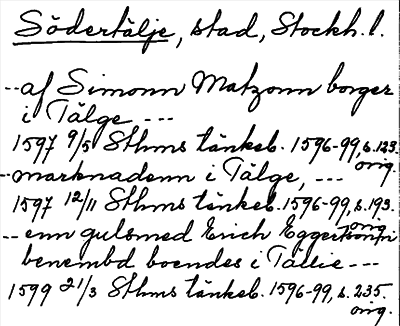 Södertälje, stad, Stockh. l.
-- af Simonn Matzonn borger
i Tälge ---
1597 9/5 Sthms tänkeb. 1596-99, s. 123.
orig.
-- marknadenn i Tälge, ---
1597 12/11 Sthms tänkeb. 1596-99, s. 193.
orig.
-- enn gulsmed Erich Eggertsonn
benembd boendes i Tällie ---
1599 21/3 Sthms tänkeb. 1596-99, s. 235.
orig.